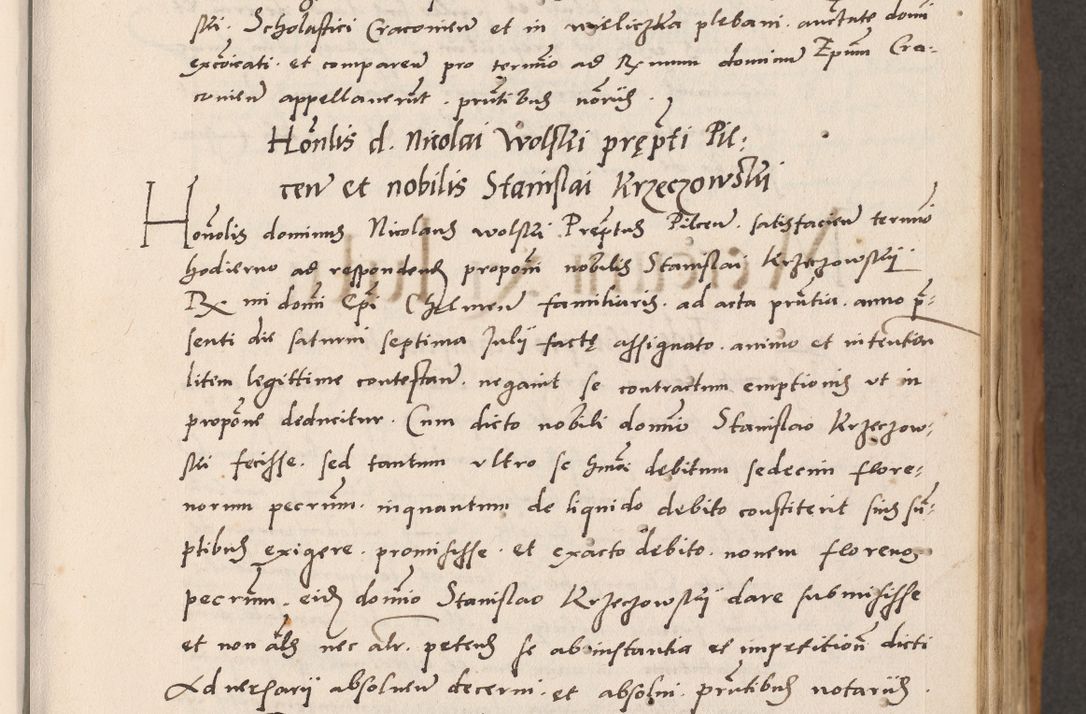 ski. Scholastici Cracovien et in wieliczka plebani. auctate domi
excoicati. et comparen pro termio ad Rx mum dominum Epum Cra-
covien appellaverut. pntibus notariis.
Honlis d. Nicolai Wolski prępti Pil:
cen et nobilis Stanislai Krzeczowski
Honolis dominus Nicolaus wolski Preptus Pilcen. satisfacien termino
hodierno ad respondendum proponi nobilis Stanislai Krzeczowskij
Rx mi domi Epi Chelmen familiaris. ad acta pntia. anno p-
senti die saturni septima Julij factę assignato. animo et intention
litem legittime contestan. negavit se contractum emptionis ut in
propone deducitur. Cum dicto nobili domio Stanislao Krzeczow-
ski fecisse. sed tantum ultro se hmoi debitum sedecim flore-
norum pecunm. inquantum de liquido debito constiterit suis sum-
ptibus exigere. promisisse. et exacto debito. novem florenos
pecunm. eidem domio Stanislao Krzeczowskij dare submisisse
et non als nec altr. petens se ab instantia et impetition dicti
Adversarij absolven decerni. et absolvi. pntibus notariis.